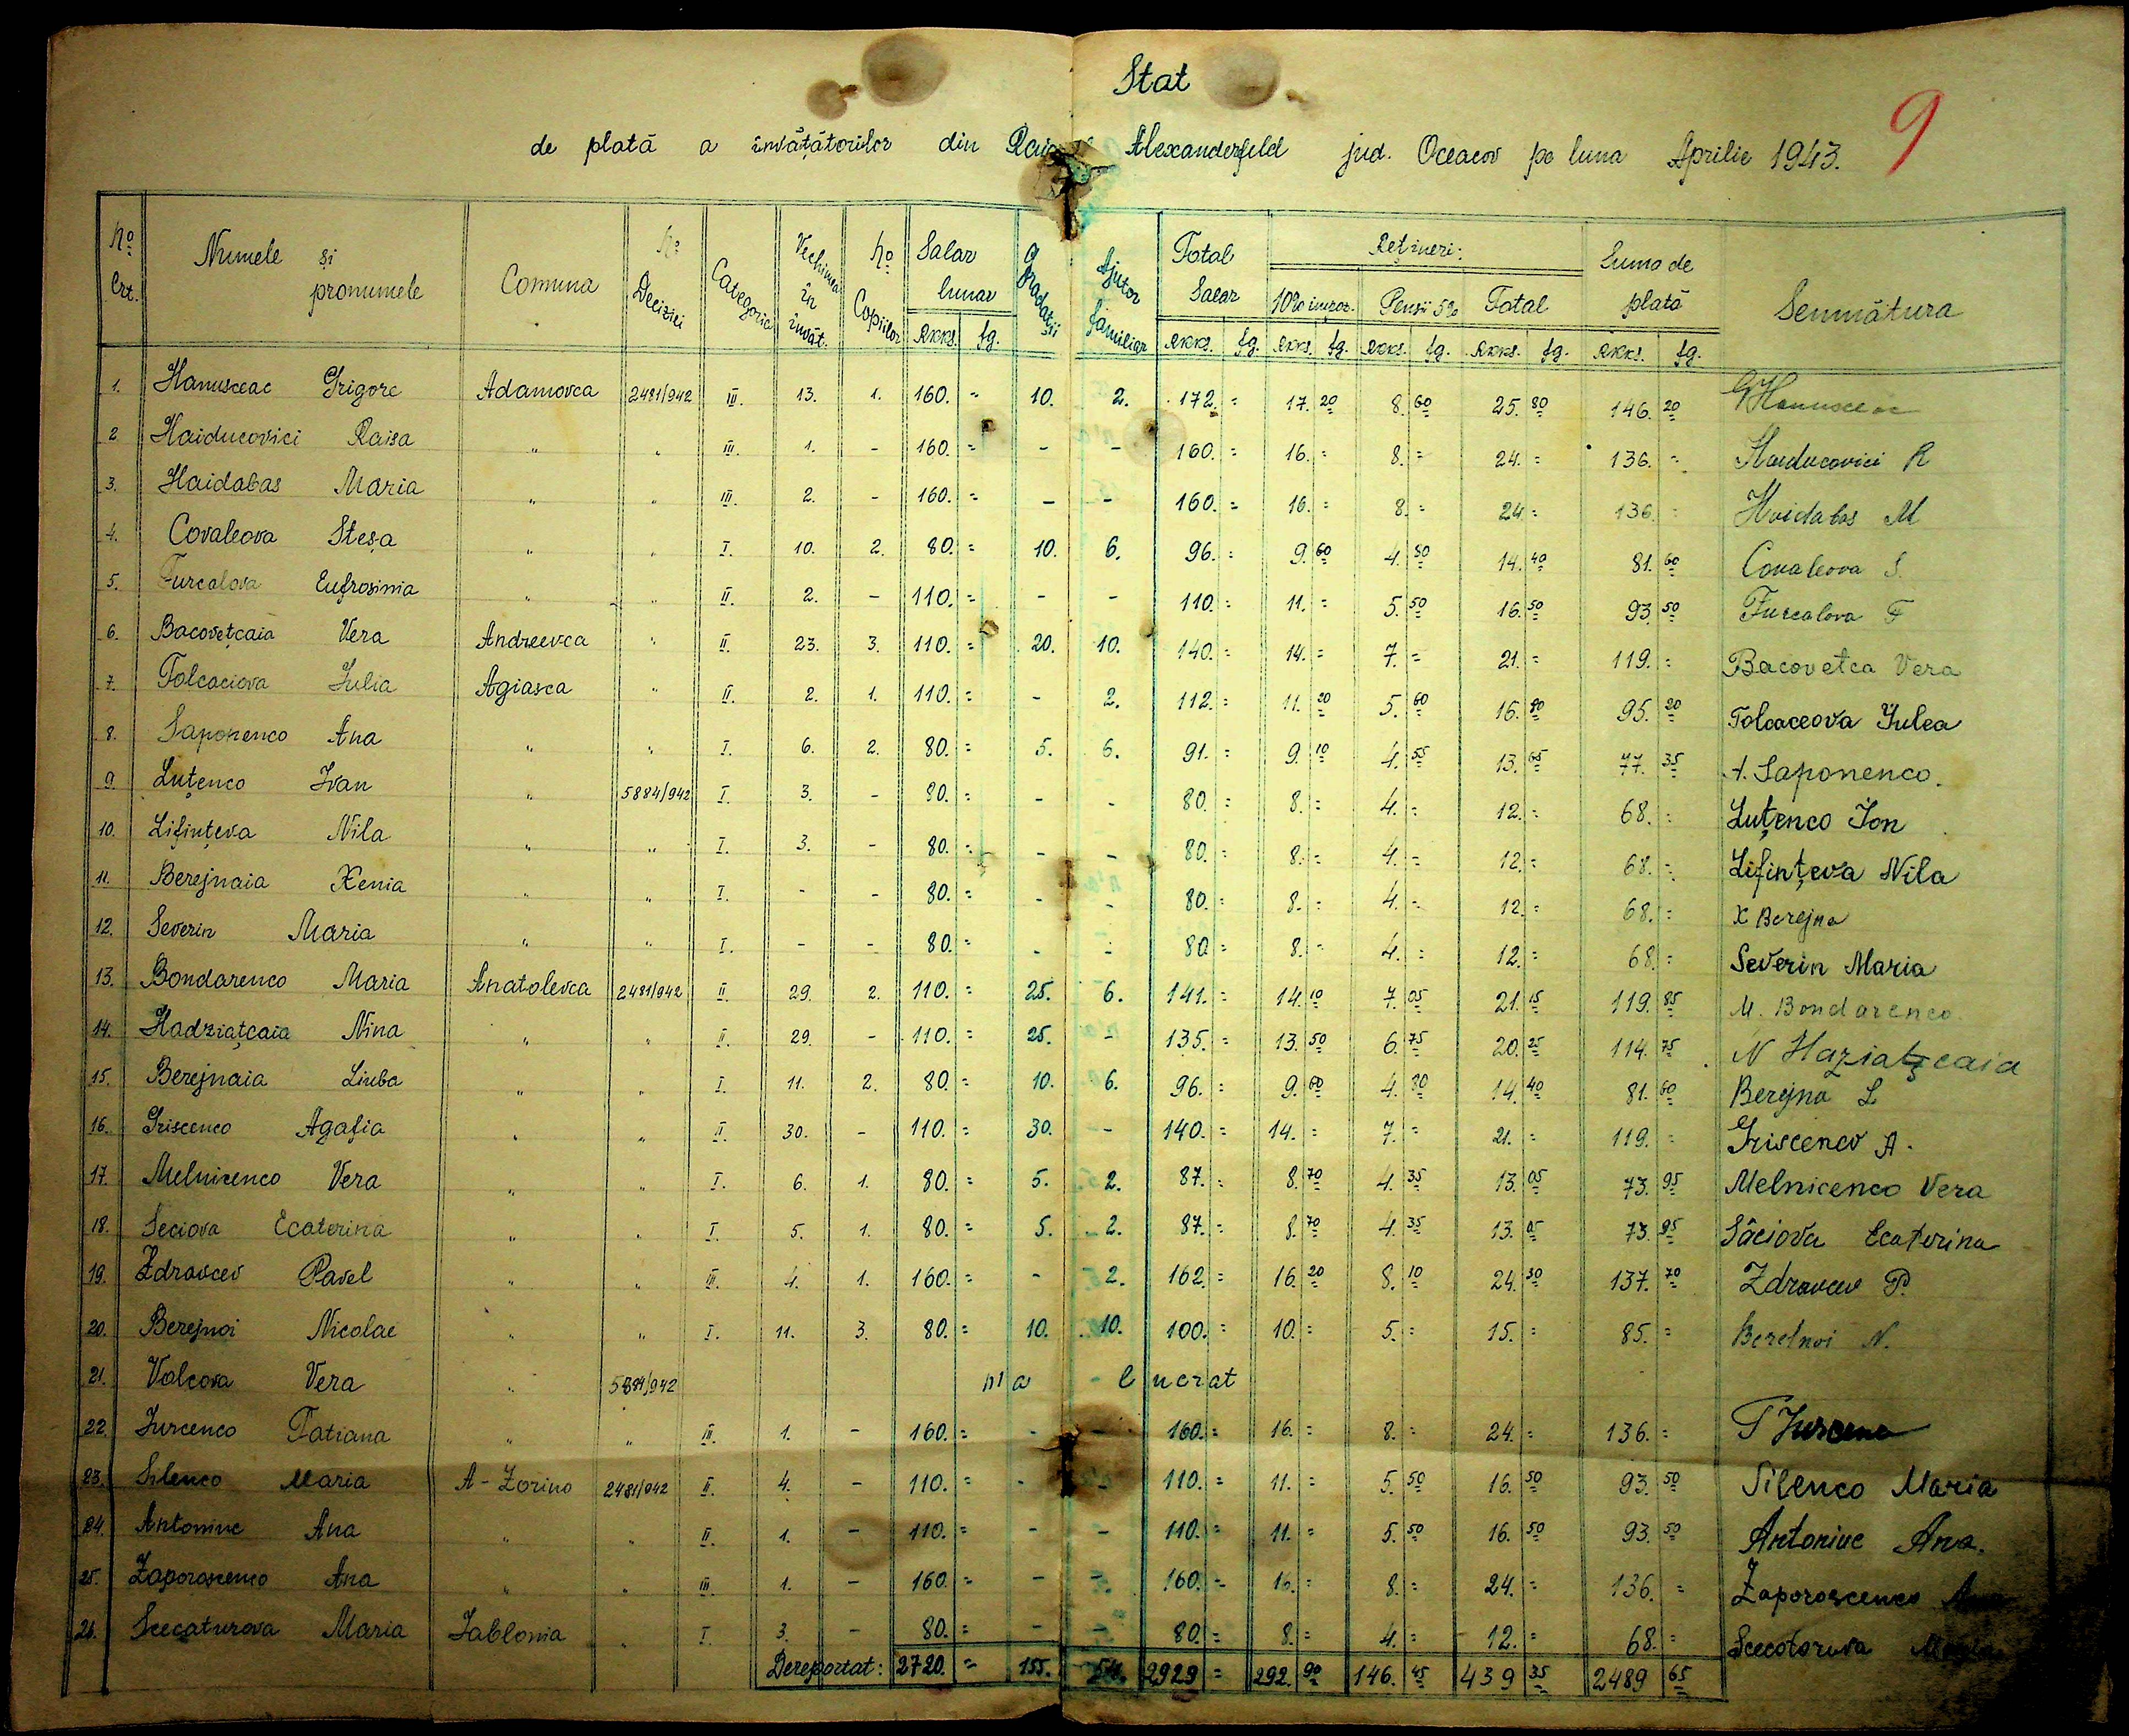 Stat
9
de plată a învățătorilor din Alexanderfeld jud. Oceacov pe luna Aprilie 1943.
No Crt. Numele și pronumele Comuna No Deciziei Categoria Vechimea în învăț. No Copiilor Salar lunar RKKS. fg. Gradații Ajutor familiar Total Salar RKKS. fg. Rețineri: 10% impoz. RKKS. fg. Pensii 5% RKKS. fg. Total RKKS. fg. Suma de plată RKKS. fg. Semnătura
1. Hanusceac Grigore Adamovca 2481/942 III. 13. 1. 160. = 10. 2. 172. = 17. 20 8. 60 25. 80 146. 20 GHanusceac
2 Haiducovici Raisa " " III. 1. - 160. = - - 160. = 16. = 8. = 24. = 136. = Haiducovici R
3. Haidabas Maria " " III. 2. - 160. = - - 160. = 16. = 8. = 24. = 136. = Haidabas M
4. Covaleova Steșa " " I. 10. 2. 80. = 10. 6. 96. = 9. 60 4. 80 14. 40 81. 60 Covaleova S.
5. Furcalova Eufrosinia " " II. 2. - 110. = - - 110. = 11. = 5. 50 16. 50 93. 50 Furcalova F
6. Bacovețcaia Vera Andreevca " II. 23. 3. 110. = 20. 10. 140. = 14. = 7. = 21. = 119. = Bacovetca Vera
7. Tolcaciova Iulia Agiasca " II. 2. 1. 110. = - 2. 112. = 11. 20 5. 60 16. 80 95. 20 Tolcaceova Iulea
8. Saponenco Ana " " I. 6. 2. 80. = 5. 6. 91. = 9. 10 4. 55 13. 65 77. 35 A. Saponenco.
9. Luțenco Ivan " 5884/942 I. 3. - 80. = - - 80. = 8. = 4. = 12. = 68. = Luțenco Ion
10. Lifințeva Nila " " I. 3. - 80. = - - 80. = 8. = 4. = 12. = 68. = Lifințeva Nila
11. Berejnaia Xenia " " I. - - 80. = - - 80. = 8. = 4. = 12. = 68. = X Berejna
12. Severin Maria " " I. - - 80. = - - 80 = 8. = 4. = 12. = 68. = Severin Maria
13. Bondarenco Maria Anatolevca 2481/942 II. 29. 2. 110. = 25. 6. 141. = 14. 10 7. 05 21. 15 119. 85 M. Bondarenco.
14. Hadziațcaia Nina " " II. 29. - 110. = 25. - 135. = 13. 50 6. 75 20. 25 114. 75 N Haziațcaia
15. Berejnaia Liuba " " I. 11. 2. 80. = 10. 6. 96. = 9. 60 4. 80 14. 40 81. 60 Berejna L
16. Griscenco Agafia " " II. 30. - 110. = 30. - 140. = 14. = 7. = 21. = 119. = Griscenco A.
17. Melnicenco Vera " " I. 6. 1. 80. = 5. 2. 87. = 8. 70 4. 35 13. 05 73. 95 Melnicenco Vera
18. Seciova Ecaterina " " I. 5. 1. 80. = 5. 2. 87. = 8. 70 4. 35 13. 05 73. 95 Sâciova Ecaterina
19. Zdravcev Pavel " " III. 4. 1. 160. = - 2. 162. = 16. 20 8. 10 24. 30 137. 70 Zdravcev P.
20. Berejnoi Nicolae " " I. 11. 3. 80. = 10. 10. 100. = 10. = 5. = 15. = 85. = Berejnoi N.
21. Volcova Vera " 5884/942 n'a lucrat
22. Iurcenco Tatiana " " III. 1. - 160. = - - 160. = 16. = 8. = 24. = 136. = T Iurcenco
23. Silenco Maria A-Zorino 2481/942 II. 4. - 110. = - - 110. = 11. = 5. 50 16. 50 93. 50 Silenco Maria
24. Antoniuc Ana " " II. 1. - 110. = - - 110. = 11. = 5. 50 16. 50 93. 50 Antoniuc Ana.
25. Zaporoscenco Ana " " III. 1. - 160. = - - 160. = 16. = 8. = 24. = 136. = Zaporoscenco Ana
26. Scecaturova Maria Iablonia " I. 3. - 80. = - - 80. = 8. = 4. = 12. = 68. =
Dereportat: 2720. = 155. 54. 2929 = 292. 90 146. 45 439 35 2489 65